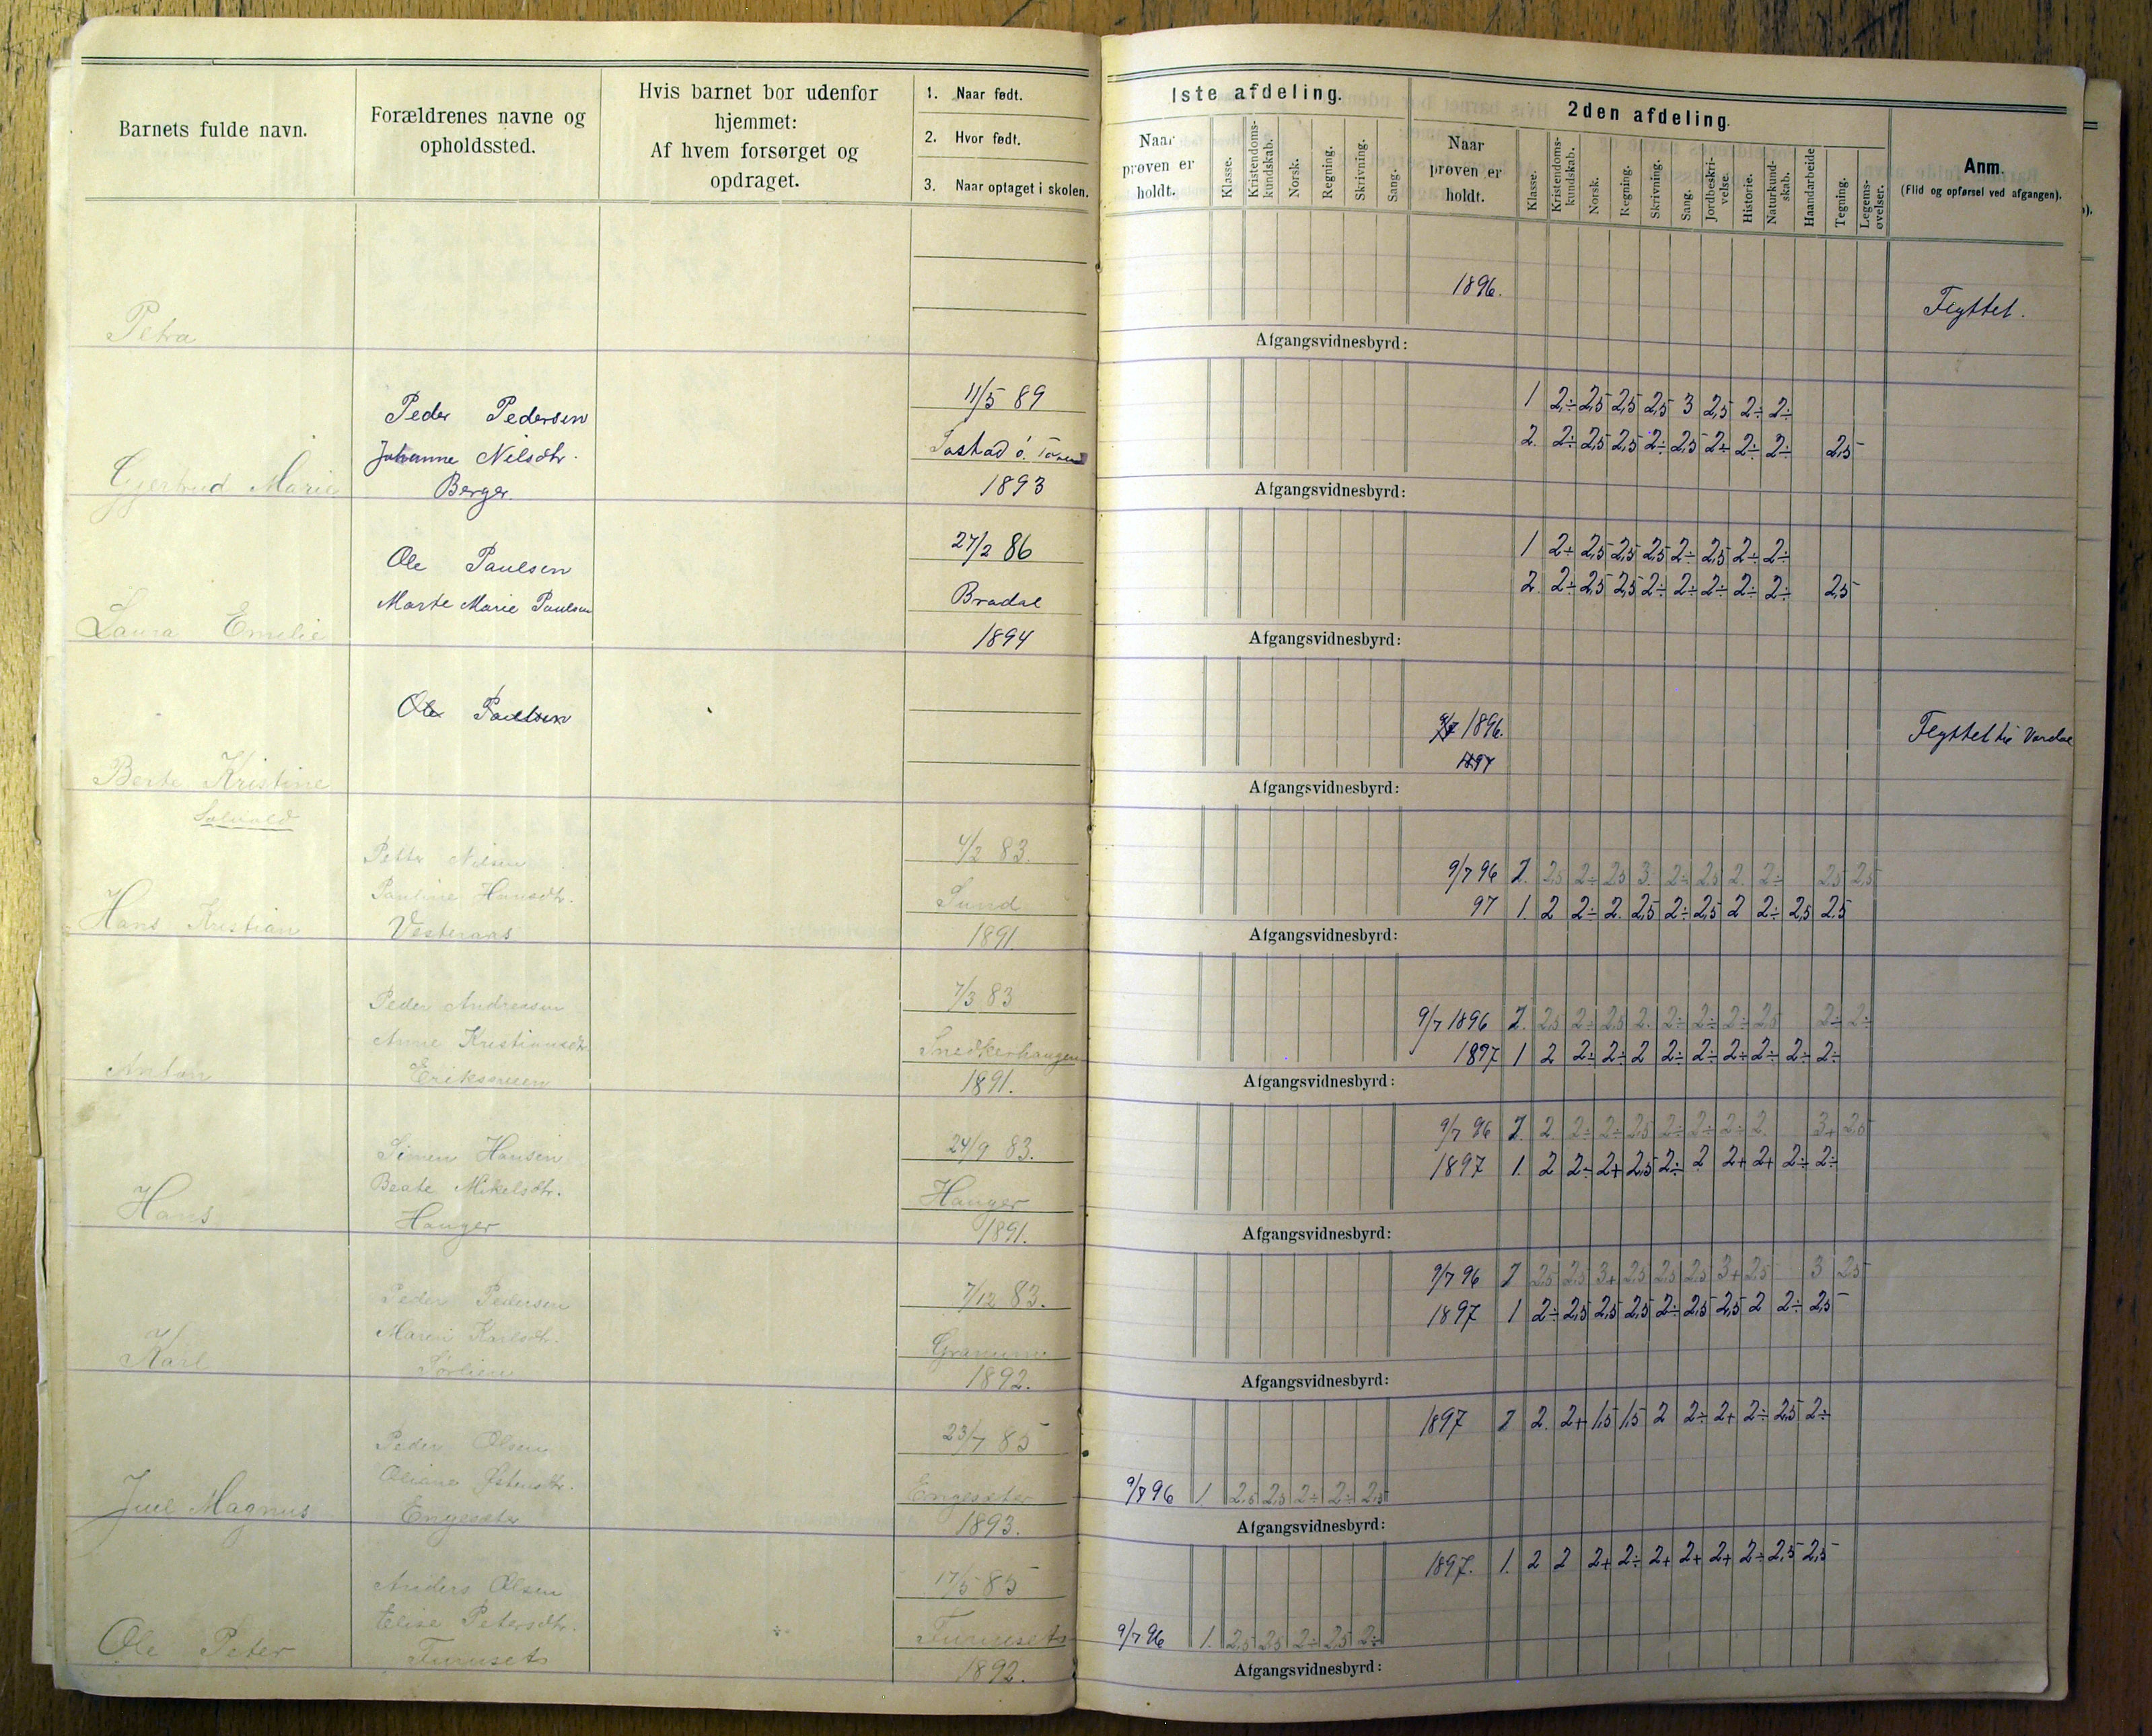 Barnets fulde navn.
Forældrenes navne og
opholdssted.
Hvis barnet bor udenfor
hjemmet:
Af hvem forsørget og
opdraget.
1. Naar født.
2. Hvor født.
3. Naar optaget i skolen.
1ste afdeling.
Naar
prøven er
holdt.
Klasse.
Kristendoms-
kundskab.
Norsk.
Regning.
Skrivning.
Sang.
2den afdeling.
Naar
prøven er
holdt.
Klasse.
Kristendoms-
kundskab.
Norsk.
Regning.
Skrivning.
Sang.
Jordbeskri-
velse.
Historie.
Naturkund-
skab.
Haandarbeide
Tegning.
Legems-
øvelser.
Anm.
(Flid og opførsel ved afgangen).
Petra
1896.
Flyttet.
Afgangsvidnesbyrd:
Gjertrud Marie
Peder Pedersen
Johanne Nilsdtr.
Berger
11/5 89
1893
1 2÷ 2,5 2,5 2,5 3 2,5 2÷ 2÷
2. 2÷ 2,5 2,5 2÷ 2,5 2÷ 2÷ 2÷ 2,5
Afgangsvidnesbyrd:
Laura Emilie
Ole Paulsen
Marte Marie Paulsen
27/2 86
Bradal
1894
1 2÷ 2,5 2,5 2,5 2÷ 2,5 2÷ 2÷
2 2÷ 2,5 2,5 2÷ 2÷ 2÷ 2÷ 2÷ 2,5
Afgangsvidnesbyrd:
Berte Kristine
Solvold
Ole Paulsen
1896.
1897
Flyttet til Vardal
Afgangsvidnesbyrd:
Hans Kristian
Petter Nilsen
Pauline Hansdtr.
Vesteraas
4/2 83.
Sund
1891.
9/7 96 2. 2,5 2÷ 2,5 3. 2÷ 2,5 2. 2÷ 2,5 2,5
97 1. 2 2÷ 2. 2,5 2÷ 2,5 2 2÷ 2,5 2.5
Afgangsvidnesbyrd:
Anton
Peder Andreasen
Anne Kristiansdtr.
Eriksrusen
7/3 83
Snedkerhaugen
1891.
9/7 1896 2. 2,5 2÷ 2,5 2. 2÷ 2÷ 2÷ 2,5 2÷ 2÷
1897 1 2 2÷ 2÷ 2 2÷ 2÷ 2÷ 2÷ 2÷ 2÷
Afgangsvidnesbyrd:
Hans
Simen Hansen
Beate Mikelsdtr.
Hauger
24/9 83.
Hauger
1891.
9/7 96 2. 2. 2÷ 2÷ 2,5 2÷ 2÷ 2÷ 2. 3+ 2,5
1897 1. 2 2÷ 2+ 2,5 2÷ 2 2+ 2+ 2÷ 2÷
Afgangsvidnesbyrd:
Karl
Peder Pedersen
Maren Karlsdtr.
Sørlien
7/12 83.
1892.
9/7 96 2 2,5 2,5 3+ 2,5 2,5 2,5 3+ 2,5 3 2,5
1897 1 2÷ 2,5 2,5 2,5 2÷ 2,5 2,5 2 2÷ 2,5
Afgangsvidnesbyrd:
Juul Magnus
Peder Olsen
Oliane Østensdtr.
Engesæter
23/7 85
Engesæter
1893.
1897 2 2. 2+ 1,5 1,5 2 2÷ 2+ 2÷ 2,5 2÷
9/7 96 1 2,5 2,5 2÷ 2÷ 2,5
Afgangsvidnesbyrd:
Ole Peter
Anders Olsen
Elise Petersdtr.
Furuset
17/5 85
Furuset
1892.
1897. 1. 2 2 2+ 2÷ 2+ 2+ 2+ 2÷ 2,5 2,5
9/7 96 1. 2,5 2,5 2÷ 2,5 2÷
Afgangsvidnesbyrd: